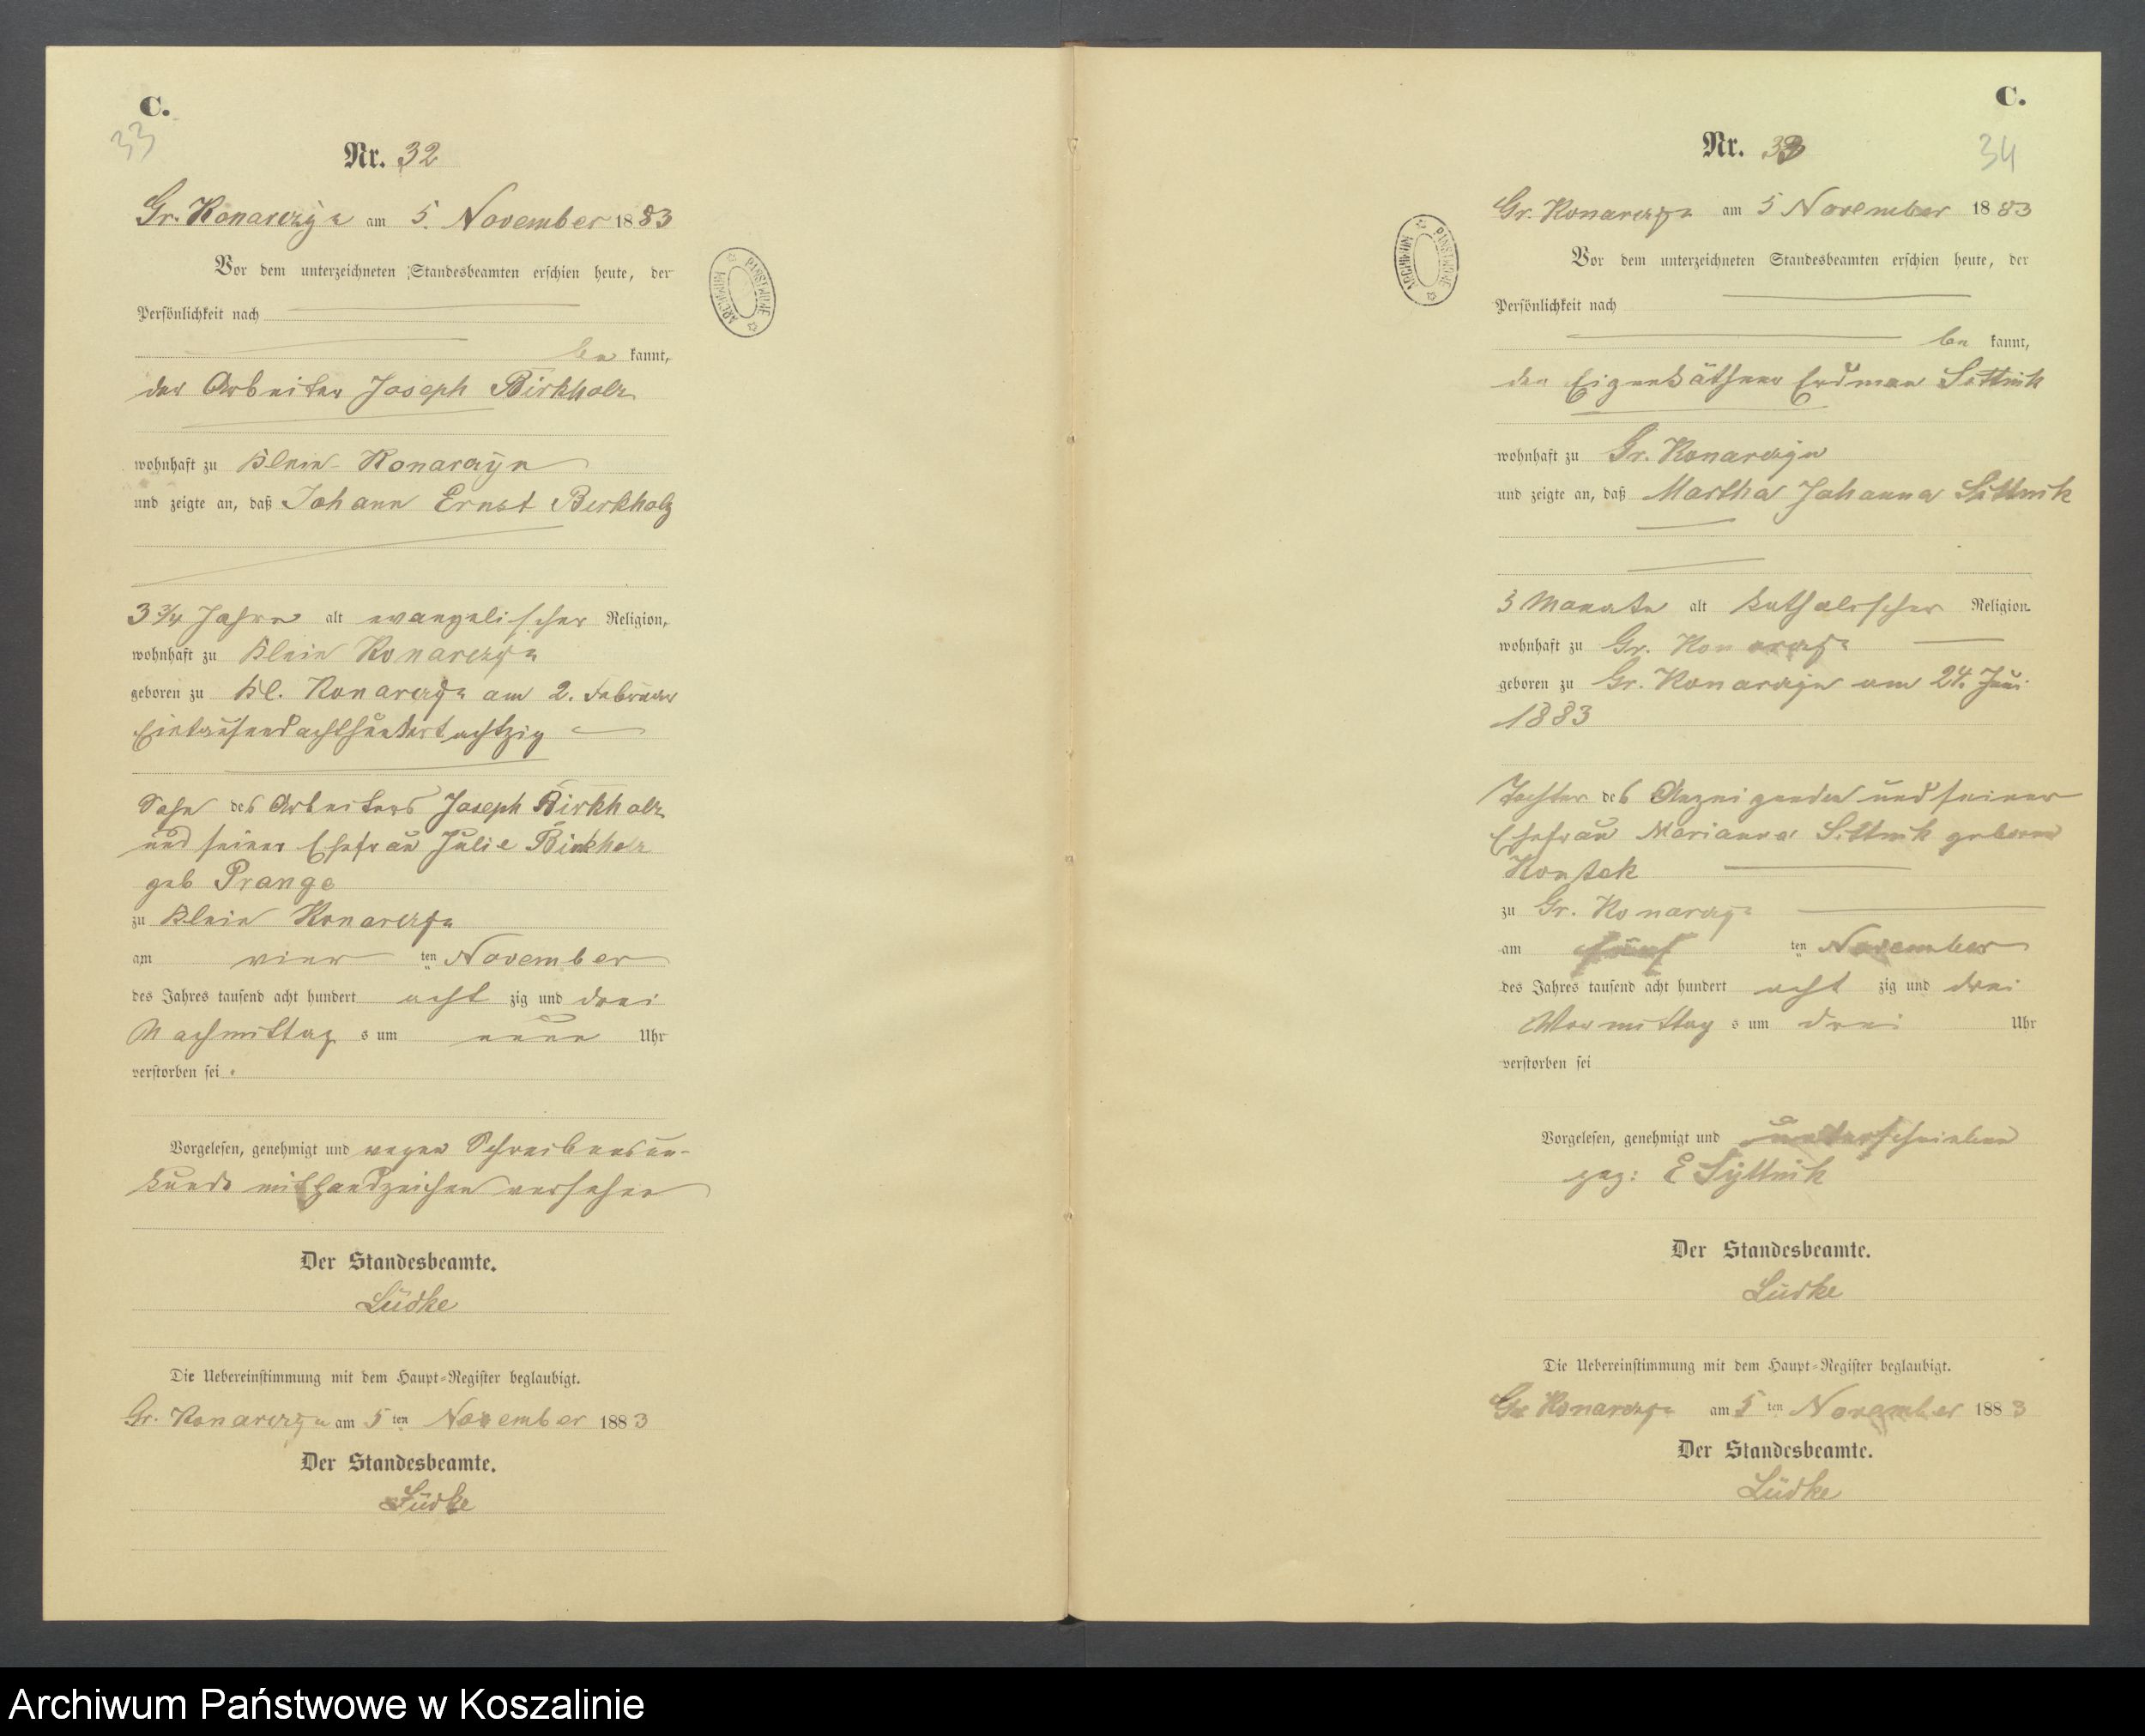 C.
33
Nr. 32
Gr. Konarczyn am 5. November 1883
Vor dem unterzeichneten Standesbeamten erschien heute, der
Persönlichkeit nach
be kannt,
der Arbeiter Joseph Birkholz
wohnhaft zu Klein Konarczyn
und zeigte an, daß Johann Ernst Birkholz
3 3/4 Jahre alt evangelischer Religion,
wohnhaft zu Klein Konarczyn
geboren zu Kl. Konarczyn am 2. Februar
Eintausendachthundertachtzig
Sohn des Arbeiters Joseph Birkholz
und seiner Ehefrau Julie Birkholz
geb Prange
zu Klein Konarczyn
am vier ten November
des Jahres tausend acht hundert acht zig und drei
Nachmittag s um neun Uhr
verstorben sei.
Vorgelesen, genehmigt und wegen Schreibensun-
kunde mit Handzeichen versehen
Der Standesbeamte.
Lüdke
Die Uebereinstimmung mit dem Haupt-Register beglaubigt.
Gr. Konarczyn am 5 ten November 1883
Der Standesbeamte.
Lüdke
ARCHIWUM PAŃSTWOWE
C.
34
Nr. 33
Gr. Konarczyn am 5 November 1883
Vor dem unterzeichneten Standesbeamten erschien heute, der
Persönlichkeit nach
be kannt,
der Eigenkäthner Erdman Sittnik
wohnhaft zu Gr. Konarczyn
und zeigte an, daß Martha Johanna Sittnik
alt katholischer Religion
wohnhaft zu Gr. Konarczyn
geboren zu Gr. Konarczyn am 24. Juni
1883
Tochter des Anzeigenden und seiner
Ehefrau Marianna Sittnik geborene
zu Gr. Konarczyn
am fünf ten November
des Jahres tausend acht hundert acht zig und drei
Vormittag s um drei Uhr
verstorben sei
Vorgelesen, genehmigt und unterschrieben
gez: E Syttnik
Der Standesbeamte.
Lüdke
Die Uebereinstimmung mit dem Haupt-Register beglaubigt.
Gr Konarczyn am 5 ten November 1883
Der Standesbeamte.
Lüdke
ARCHIWUM PAŃSTWOWE
Archiwum Państwowe w Koszalinie